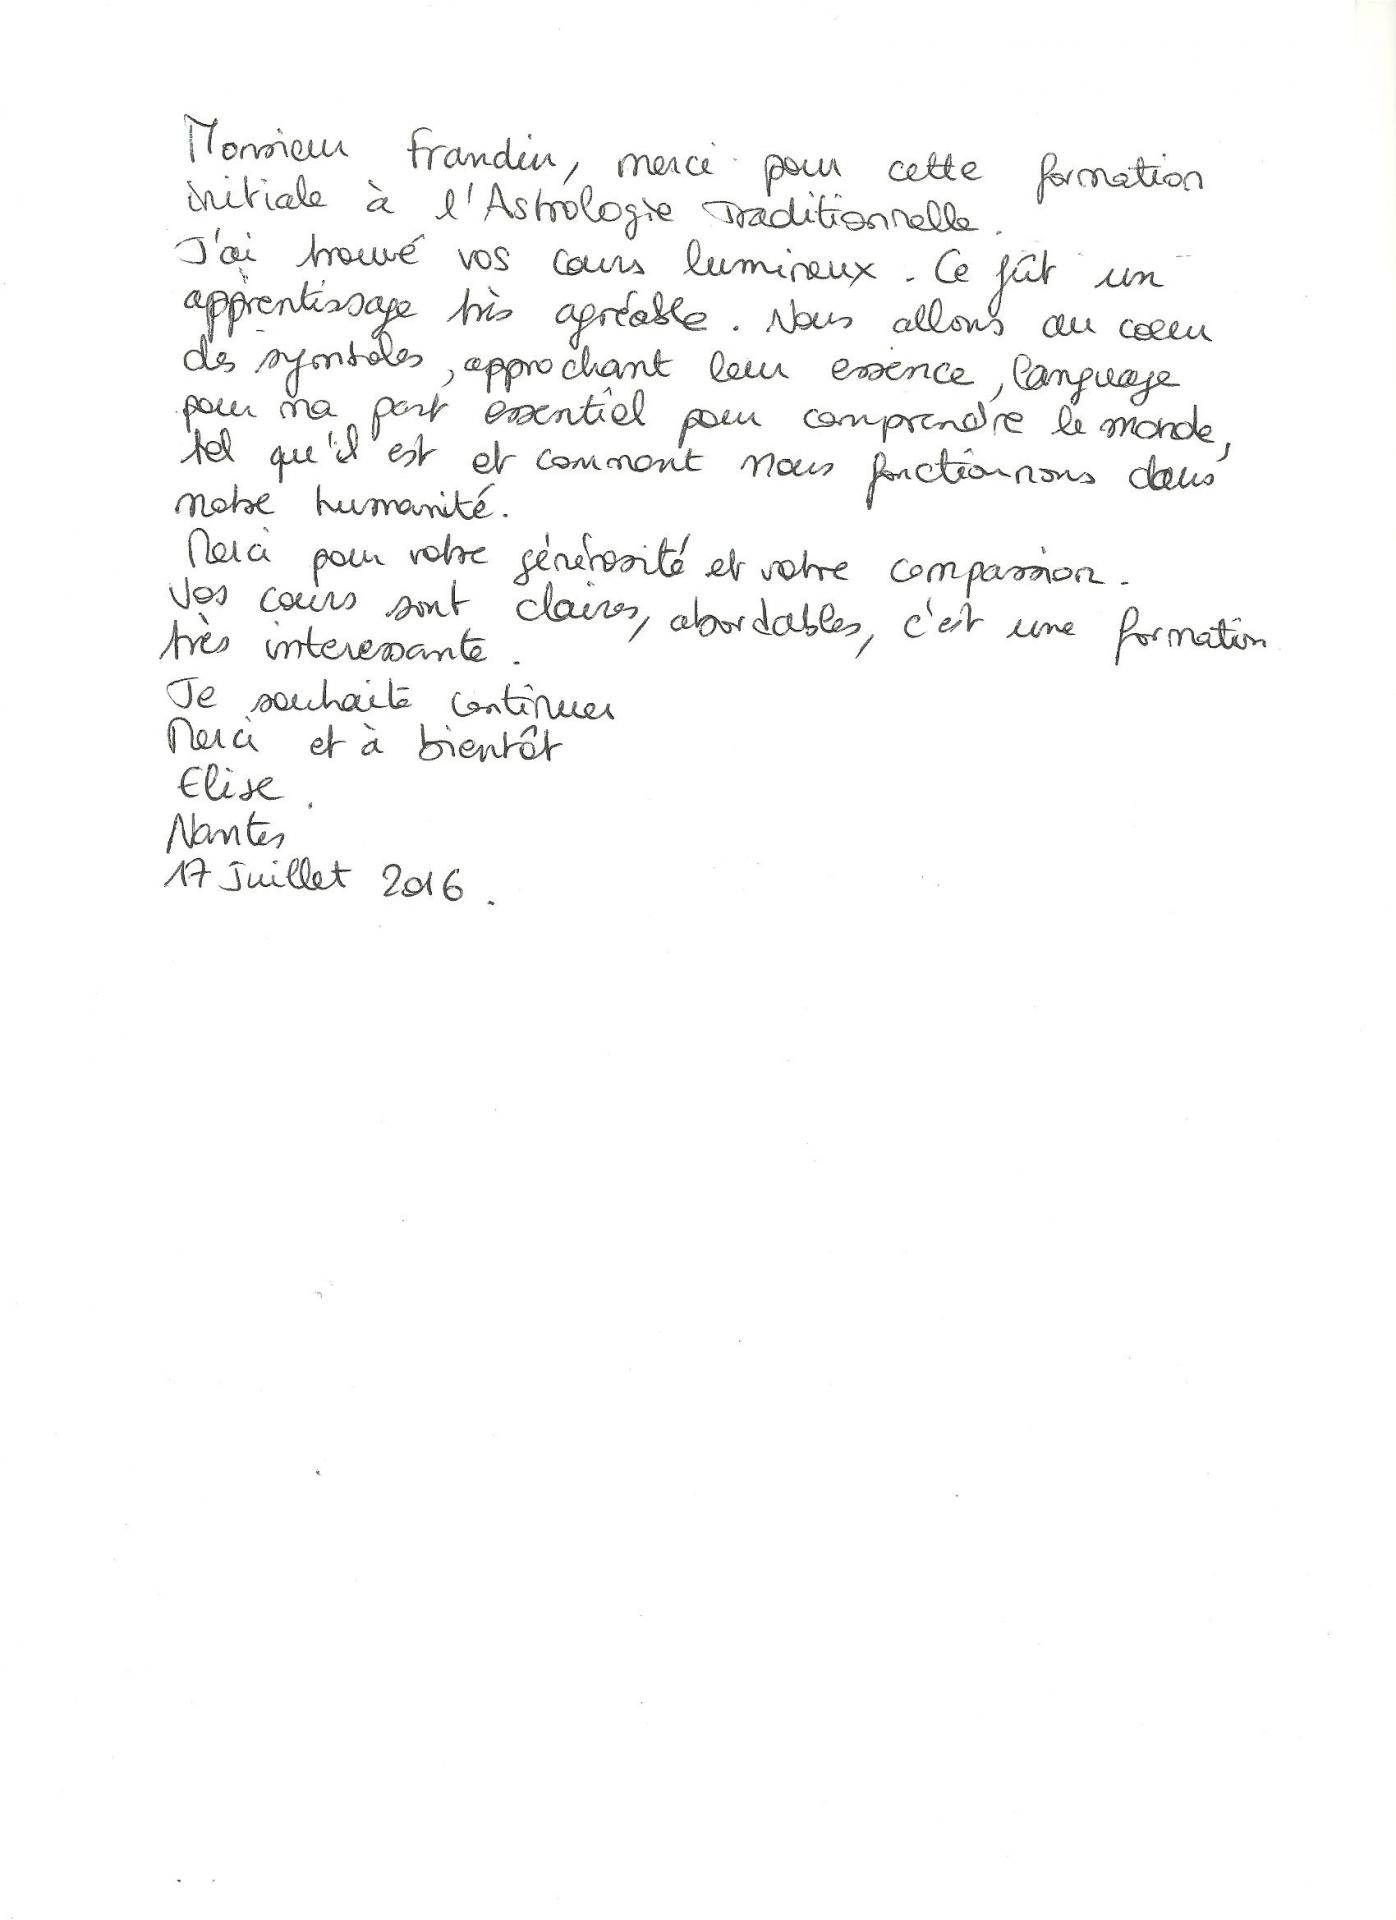 Monsieur Frandin, merci pour cette formation
initiale à l'Astrologie Traditionnelle.
J'ai trouvé vos cours lumineux. Ce fût un
apprentissage très agréable. Nous allons au coeur
des symboles, approchant leur essence, language
pour ma part essentiel pour comprendre le monde,
tel qu'il est et comment nous fonctionnons dans
notre humanité.
Merci pour votre générosité et votre compassion.
Vos cours sont claires, abordables, c'est une formation
très interessante.
Je souhaite continuer
Merci et à bientôt
Elise.
Nantes
17 Juillet 2016.